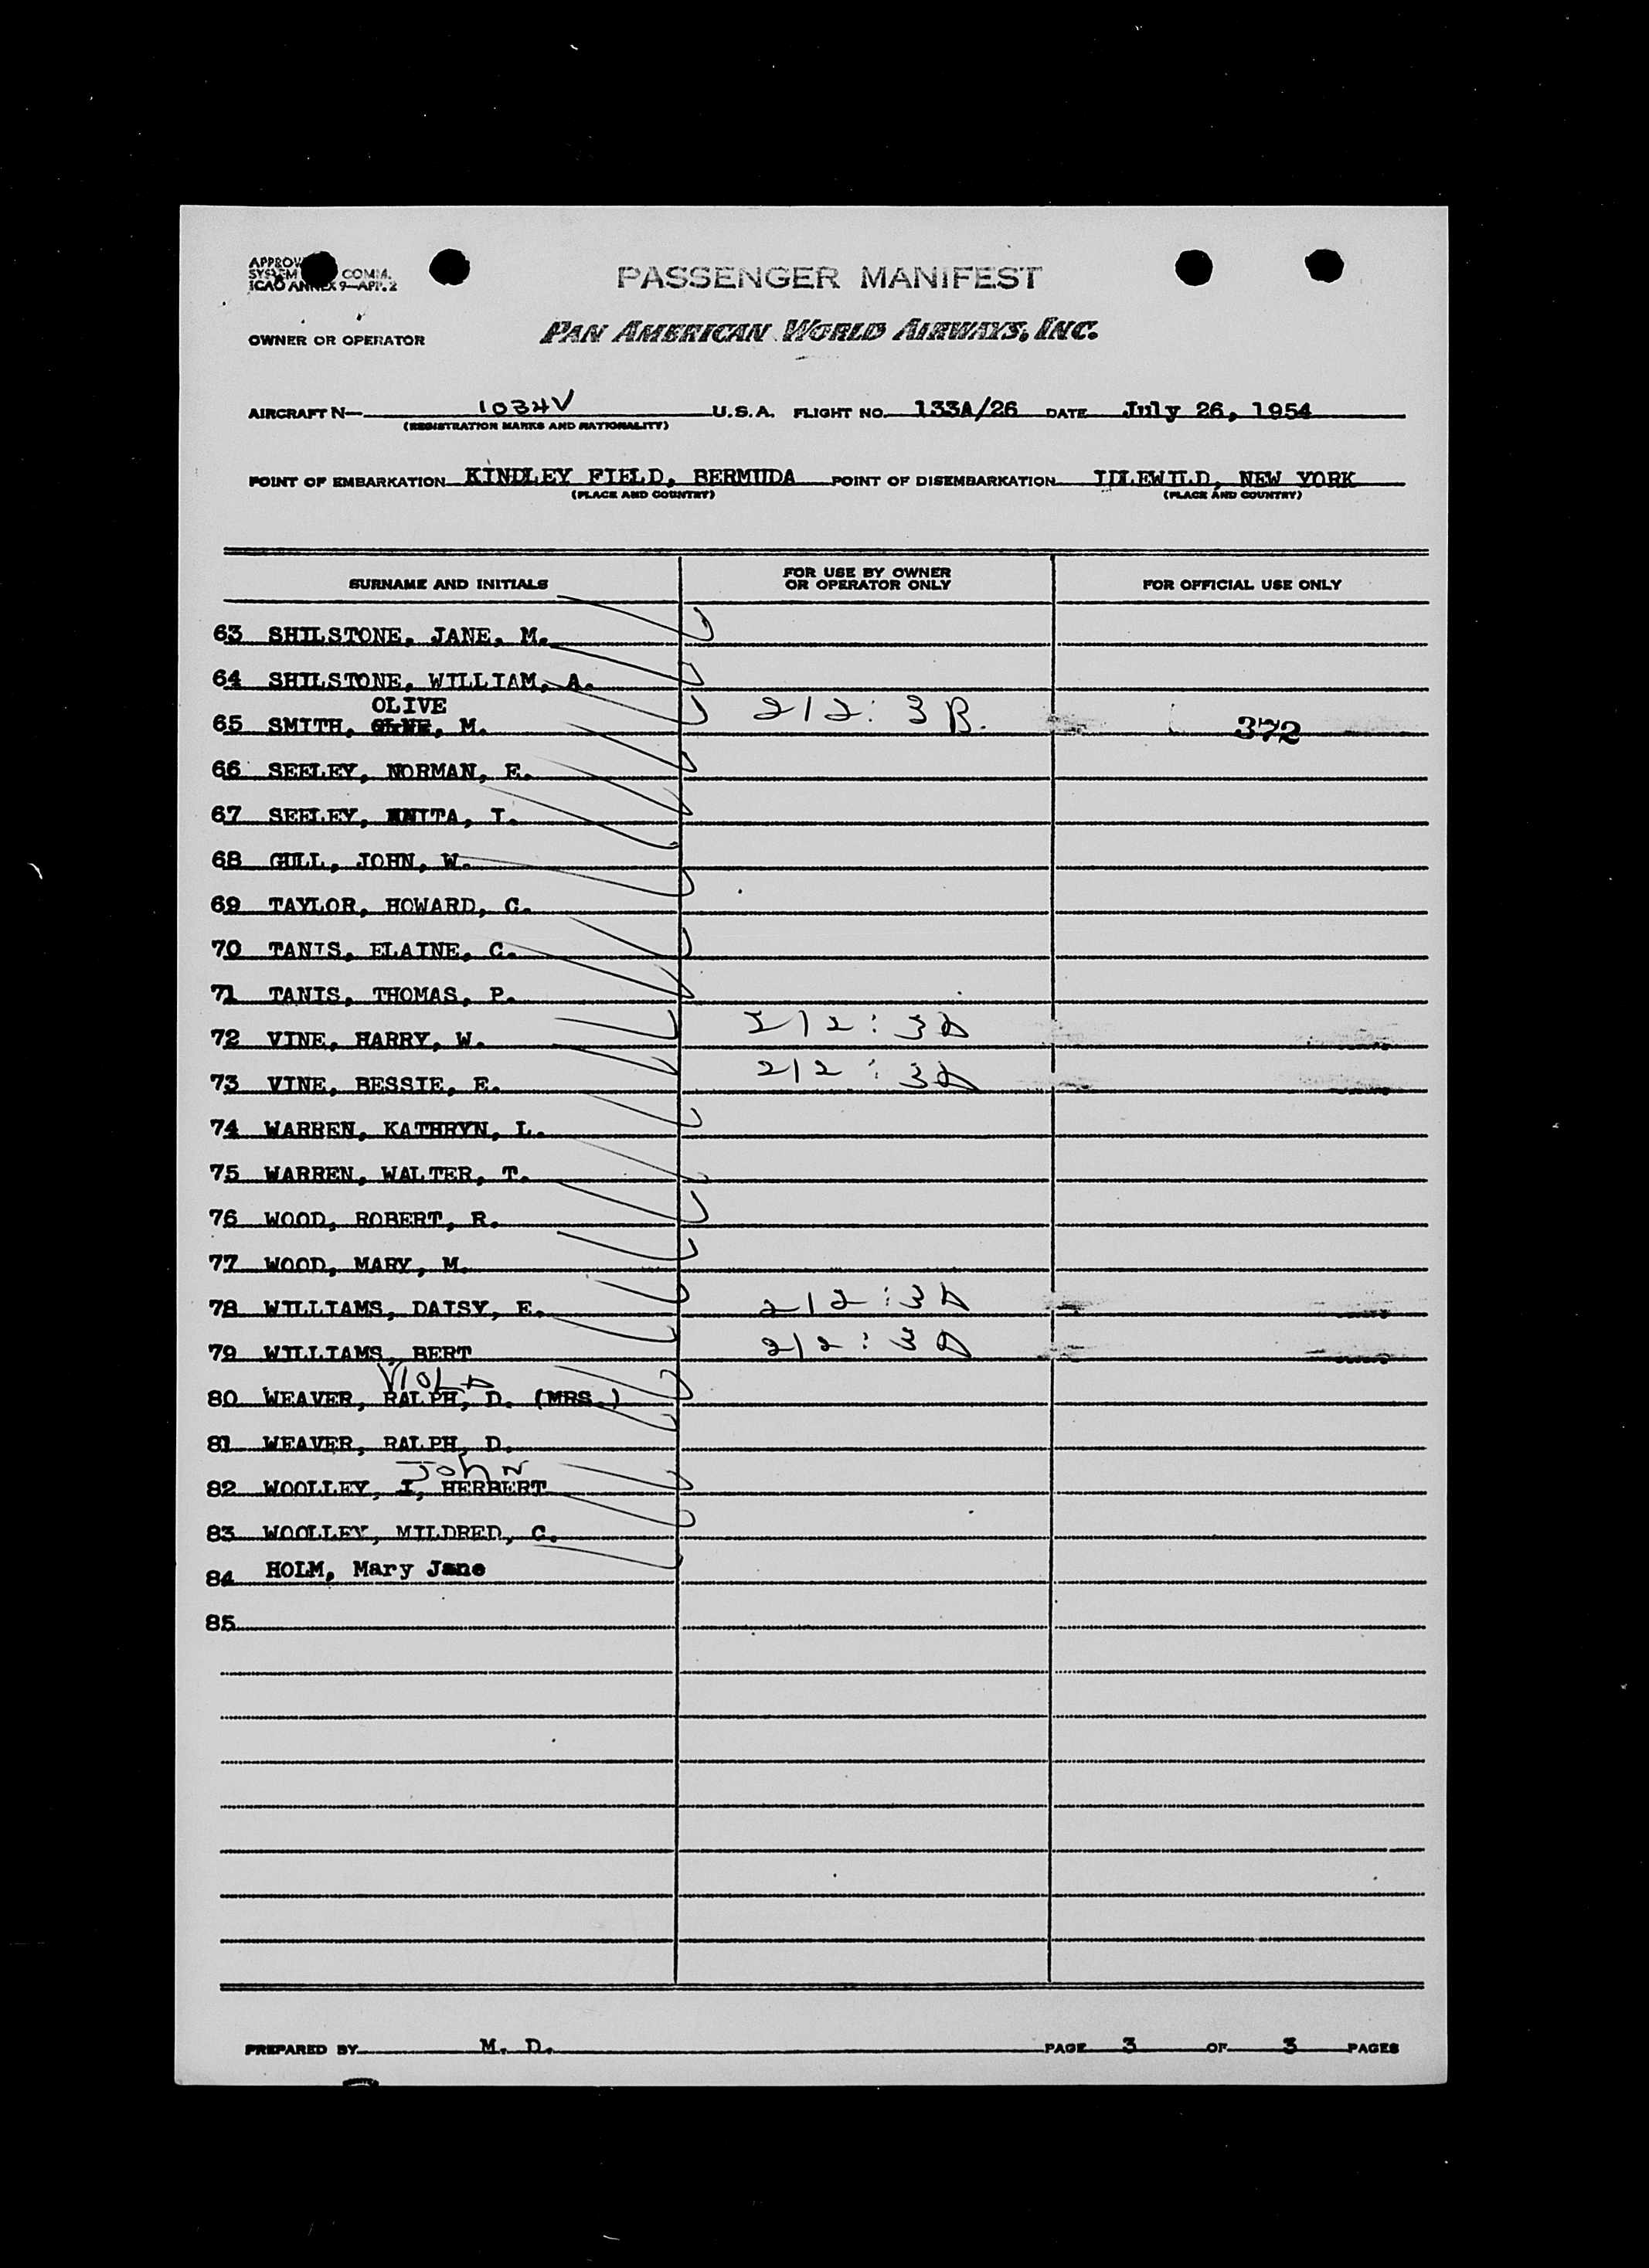 APPROV
SYSTEM COMM.
ICAO ANNEX 9—APP. 2
PASSENGER MANIFEST
OWNER OR OPERATOR PAN AMERICAN WORLD AIRWAYS, INC.
AIRCRAFT N— 1034V U.S.A. FLIGHT NO. 133A/26 DATE July 26, 1954
(REGISTRATION MARKS AND NATIONALITY)
POINT OF EMBARKATION KINDLEY FIELD, BERMUDA POINT OF DISEMBARKATION IDLEWILD, NEW YORK
(PLACE AND COUNTRY) (PLACE AND COUNTRY)
SURNAME AND INITIALS FOR USE BY OWNER OR OPERATOR ONLY FOR OFFICIAL USE ONLY
63 SHILSTONE, JANE, M.
64 SHILSTONE, WILLIAM, A.
OLIVE
65 SMITH, M. 212: 3B. 372
66 SEELEY, NORMAN, E.
67 SEELEY, ANITA, I.
68 GULL, JOHN, W.
69 TAYLOR, HOWARD, C.
70 TANIS, ELAINE, C.
71 TANIS, THOMAS, P.
72 VINE, HARRY, W. 212: 3B
73 VINE, BESSIE, E. 212: 3B
74 WARREN, KATHRYN, L.
75 WARREN, WALTER, T.
76 WOOD, ROBERT, R.
77 WOOD, MARY, M.
78 WILLIAMS, DAISY, E. 212: 3B
79 WILLIAMS, BERT 212: 3B
VIOLA
80 WEAVER, RALPH, D. (MRS.)
81 WEAVER, RALPH, D.
John
82 WOOLLEY, I, HERBERT
83 WOOLLEY, MILDRED, C.
84 HOLM, Mary Jane
85
PREPARED BY M. D. PAGE 3 OF 3 PAGES